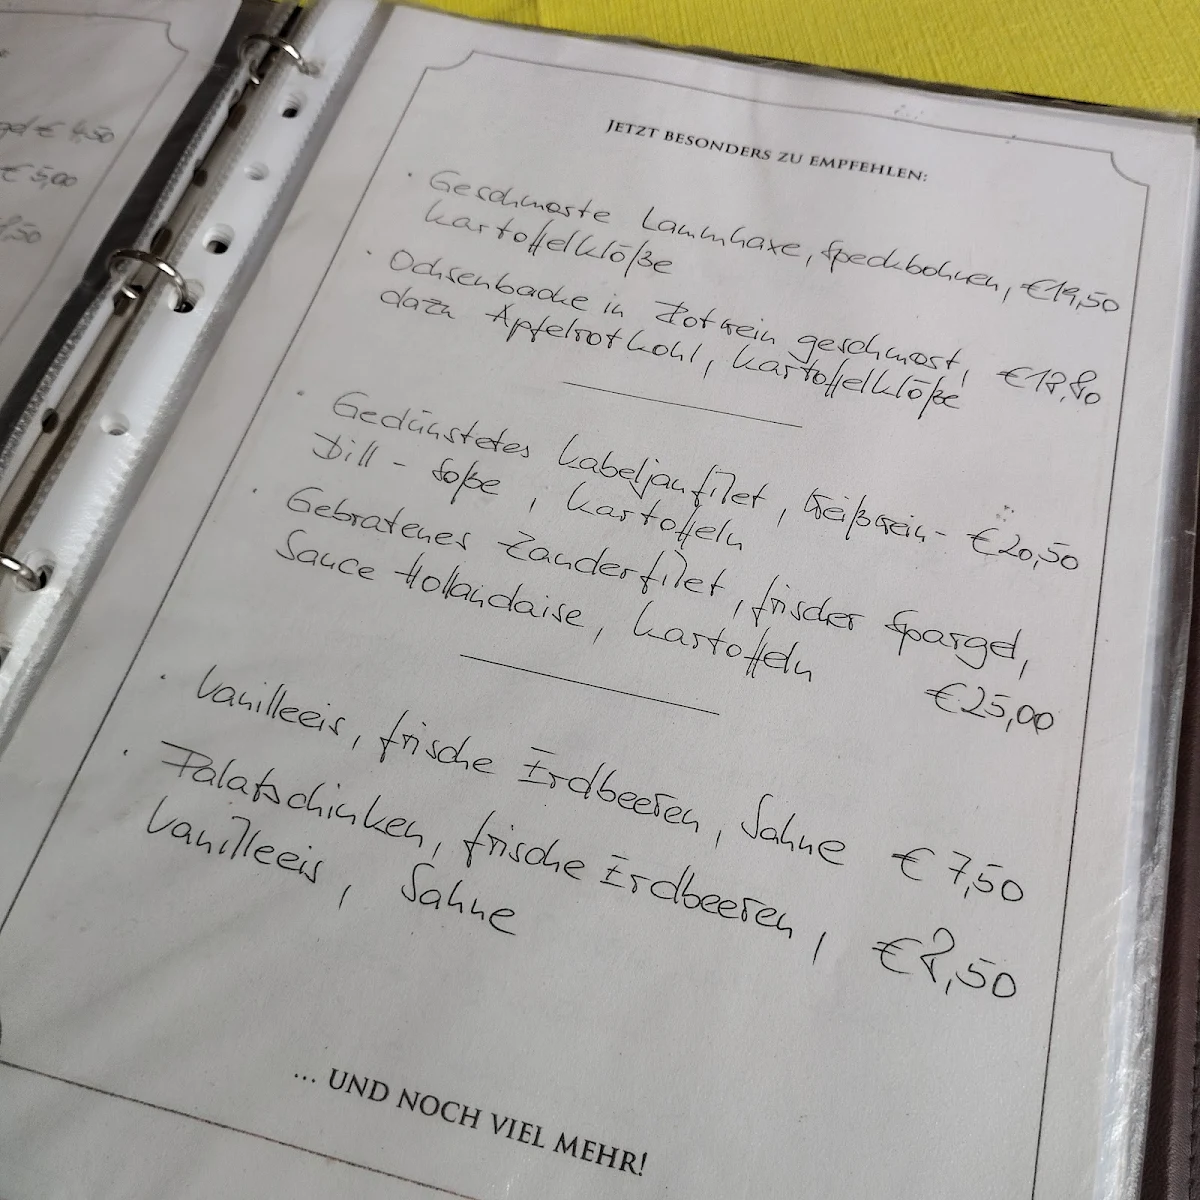 gel € 4,50
€ 5,00
,50
JETZT BESONDERS ZU EMPFEHLEN:
· Geschmorte Lammhaxe, Speckbohnen, €19,50
Kartoffelklöße
· Ochsenbacke in Rotwein geschmort, €18,80
dazu Apfelrotkohl, Kartoffelklöße
· Gedünstetes Kabeljaufilet, Weißwein- €20,50
Dill-Soße, Kartoffeln
· Gebratenes Zanderfilet, frischer Spargel,
Sauce Hollandaise, Kartoffeln €25,00
· Vanilleeis, frische Erdbeeren, Sahne € 7,50
· Palatschinken, frische Erdbeeren, € 8,50
Vanilleeis, Sahne
... UND NOCH VIEL MEHR!